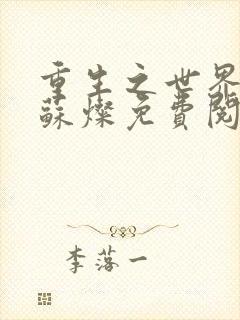 重生之世界
蘇燦免費閱
李落一